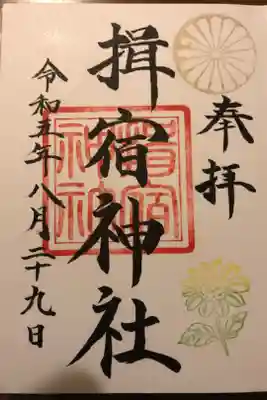 奉拝
揖宿神社
令和五年八月二十九日